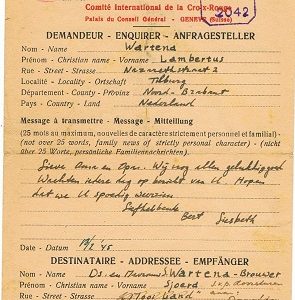 Comité International de la Croix-Rouge
Palais du Conseil Général - GENÈVE (Suisse)
2042
DEMANDEUR - ENQUIRER - ANFRAGESTELLER
Nom - Name Wartena
Prénom - Christian name - Vorname Lambertus
Rue - Street - Strasse Nazarethstraat 2
Localité - Locality - Ortschaft Tilburg
Département - County - Provinz Noord-Brabant
Pays - Country - Land Nederland
Message à transmettre - Message - Mitteilung
(25 mots au maximum, nouvelles de caractère strictement personnel et familial)
(not over 25 words, family news of strictly personal character)
(nicht über 25 Worte, persönliche Familiennachrichten)
Lieve Oma en Opa. Wij nog allen gelukkig goed
Wachten iedere dag op bericht van U. Hopen
dat we U spoedig weerzien
Liefhebbende
Bert Liesbeth
Date - Datum 45
DESTINATAIRE - ADDRESSEE - EMPFÄNGER
Nom - Name Ds. en Mevrouw Wartena-Brouwer
Prénom - Christian name - Vorname Sjoerd
Rue - Street - Strasse